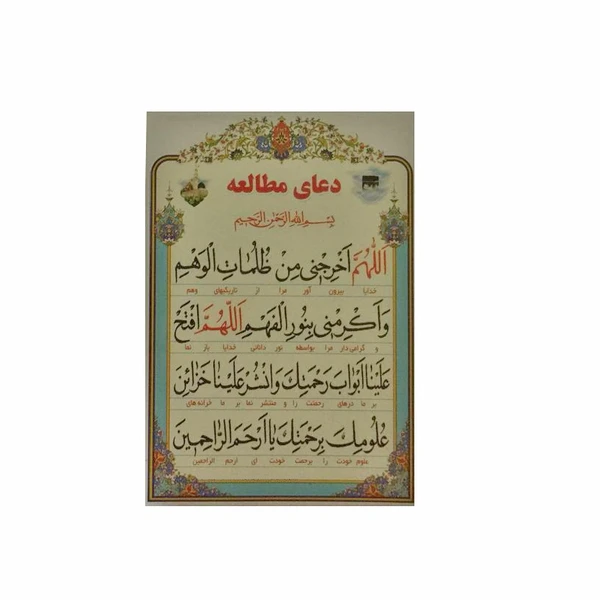 دعای مطالعه
بسم الله الرحمن الرحیم
اَللّهُمَّ اَخْرِجْنی مِنْ ظُلُماتِ الْوَهْمِ
خدایا بیرون آور مرا از تاریکیهای وهم
وَ اَکْرِمْنی بِنُورِ الْفَهْمِ اَللّهُمَّ افْتَحْ
و گرامی دار مرا بواسطه نور دانائی خدایا باز نما
عَلَیْنا اَبْوابَ رَحْمَتِکَ وَ انْشُرْ عَلَیْنا خَزائِنَ
بر ما درهای رحمتت را و منتشر نما بر ما خزانه های
عُلُومِکَ بِرَحْمَتِکَ یا اَرْحَمَ الرّاحِمینَ
علوم خودت را برحمت خودت ای ارحم الراحمین